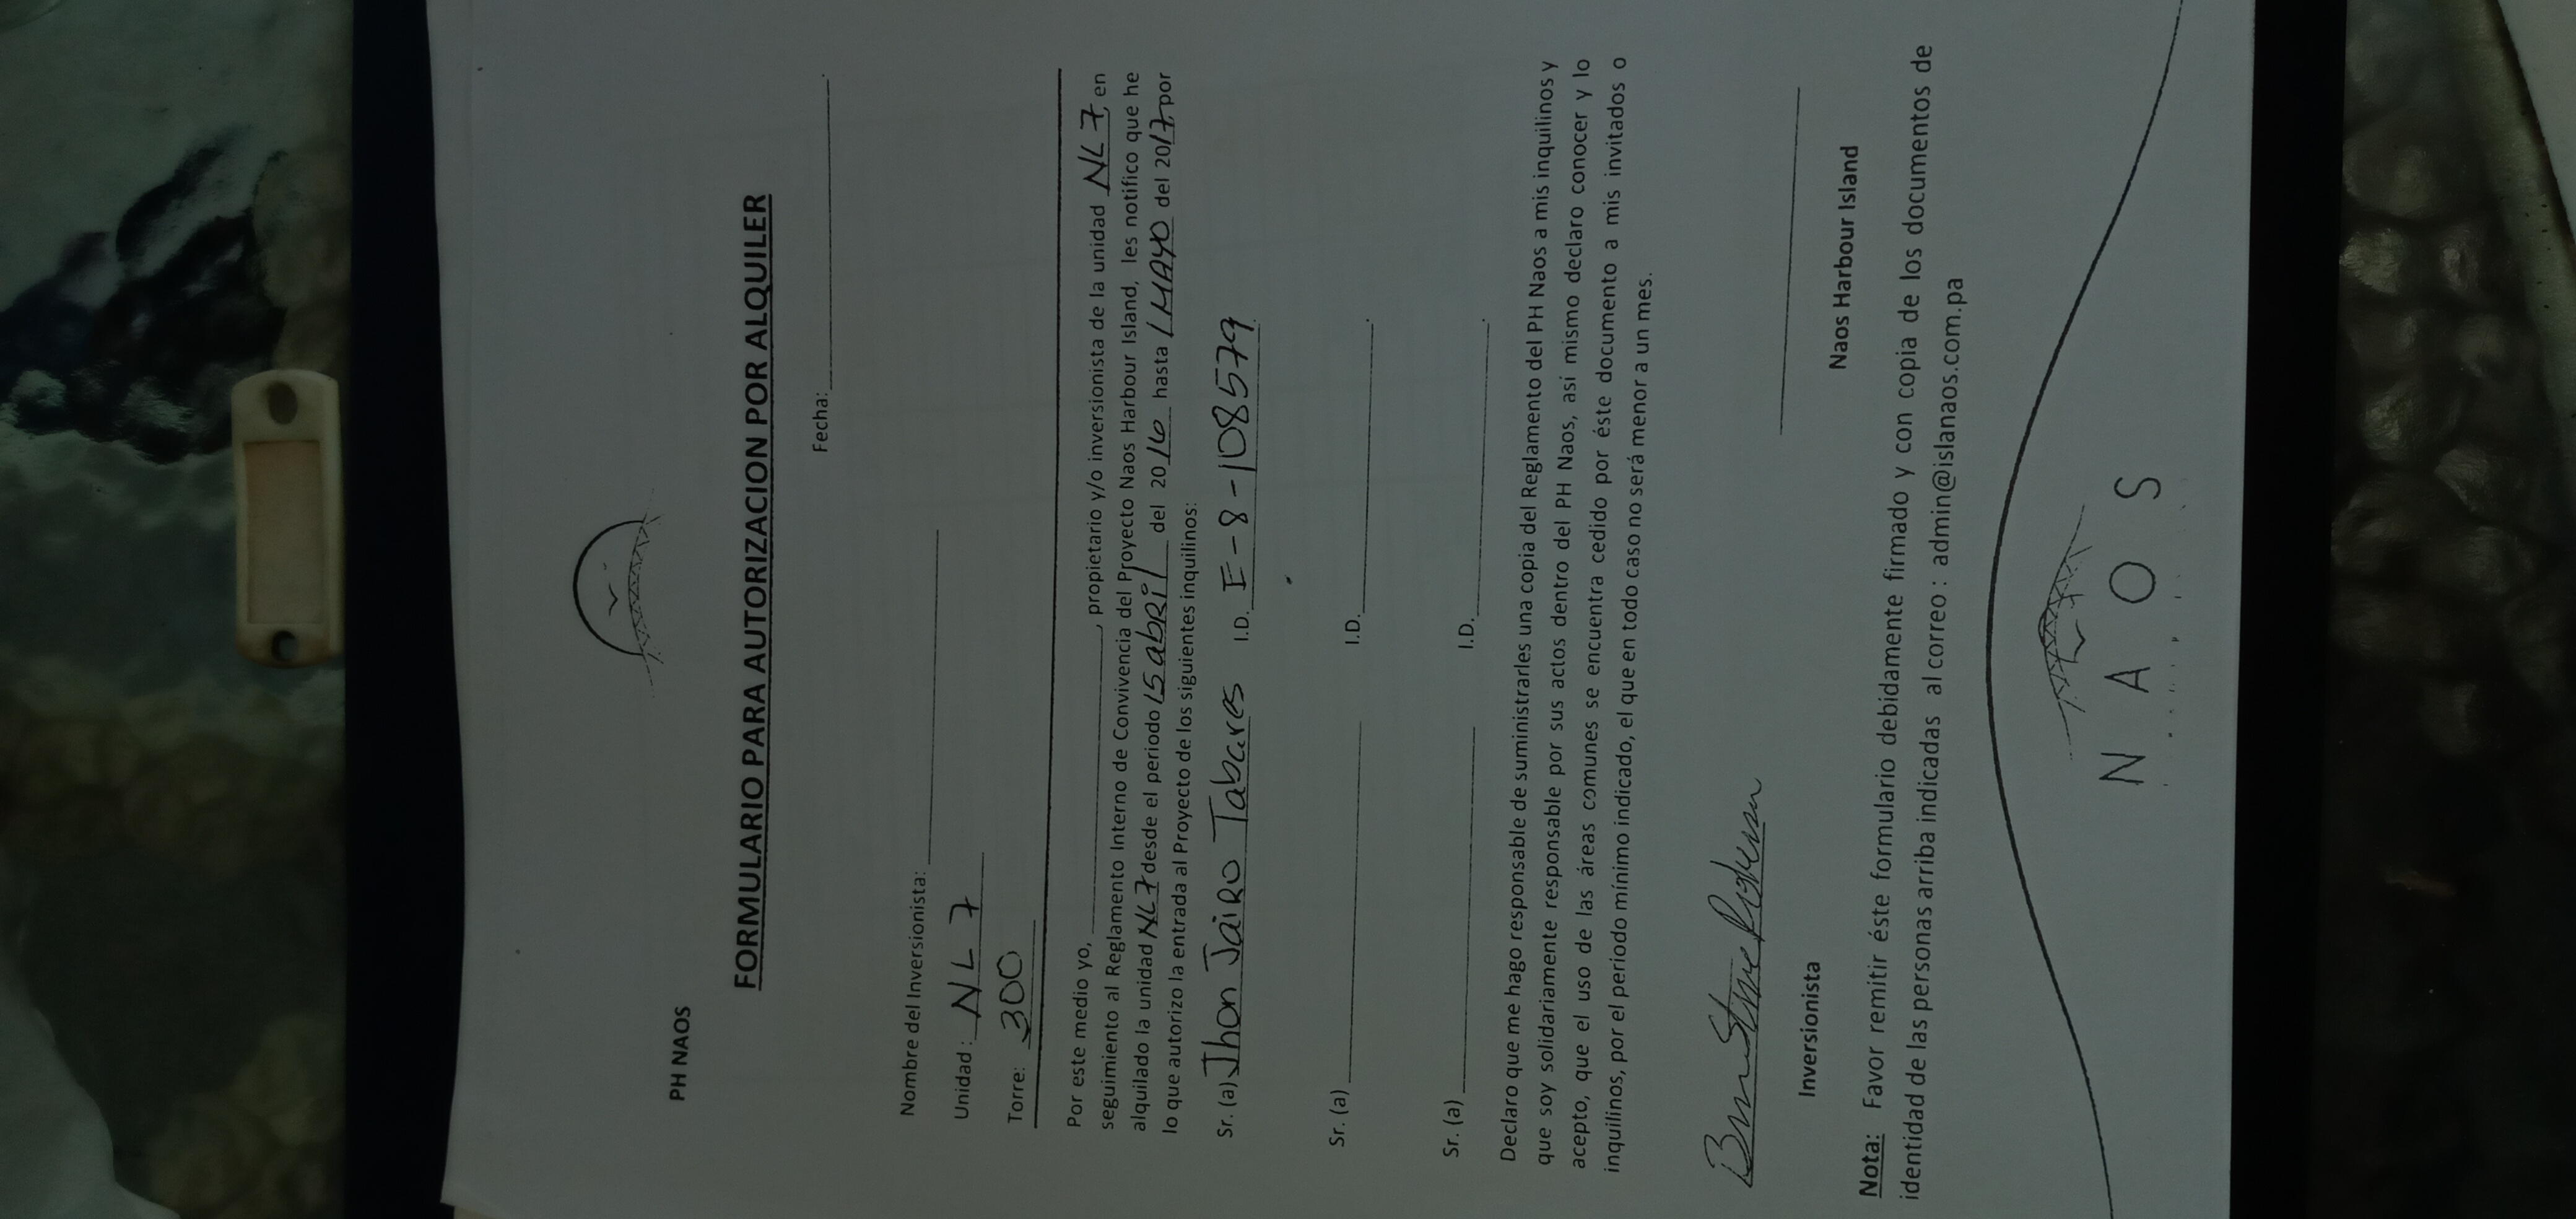 PH NAOS
FORMULARIO PARA AUTORIZACION POR ALQUILER
Fecha:
Nombre del Inversionista:
Unidad : NL 7
Torre: 300
Por este medio yo, , propietario y/o inversionista de la unidad NL 7, en
seguimiento al Reglamento Interno de Convivencia del Proyecto Naos Harbour Island, les notifico que he
alquilado la unidad NL7 desde el periodo 15 abRil del 2016 hasta 1 MAYO del 2017, por
lo que autorizo la entrada al Proyecto de los siguientes inquilinos:
Sr. (a) Jhon JaiRO Tabares I.D. E-8-108579
Sr. (a) I.D. .
Sr. (a) I.D. .
Declaro que me hago responsable de suministrarles una copia del Reglamento del PH Naos a mis inquilinos y
que soy solidariamente responsable por sus actos dentro del PH Naos, así mismo declaro conocer y lo
acepto, que el uso de las áreas comunes se encuentra cedido por éste documento a mis invitados o
inquilinos, por el periodo mínimo indicado, el que en todo caso no será menor a un mes.
Inversionista
Naos Harbour Island
Nota: Favor remitir éste formulario debidamente firmado y con copia de los documentos de
identidad de las personas arriba indicadas al correo : admin@islanaos.com.pa
NAOS